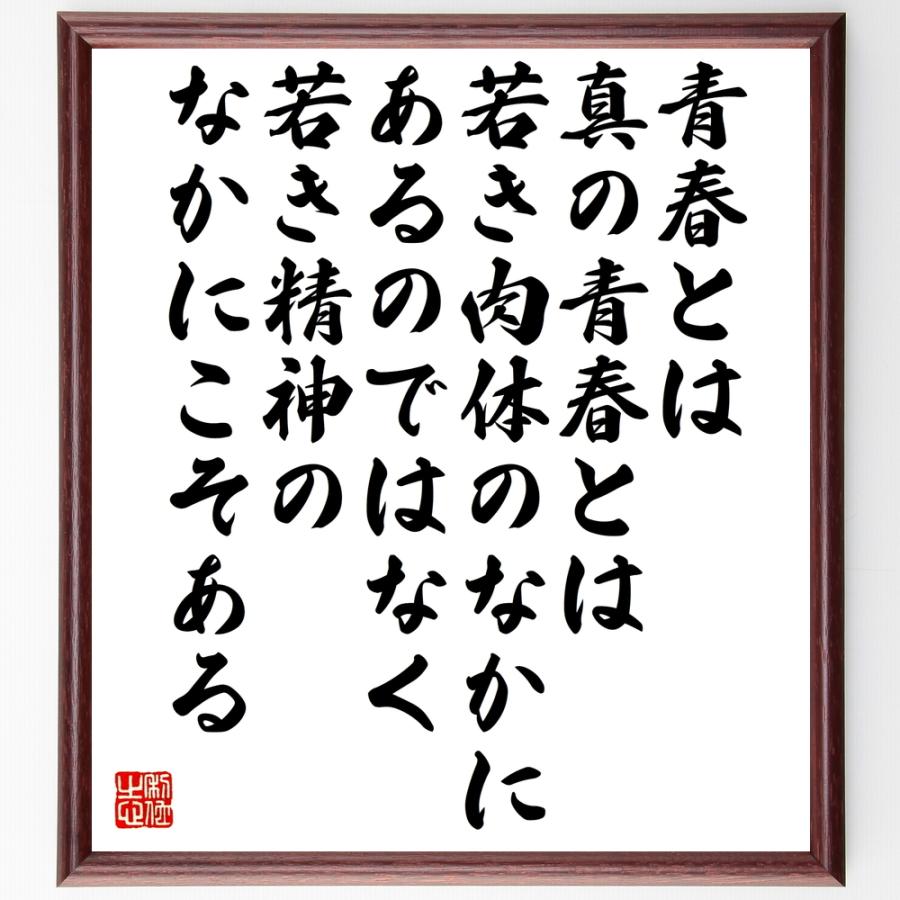 青春とは
真の青春とは
若き肉体のなかに
あるのではなく
若き精神の
なかにこそある